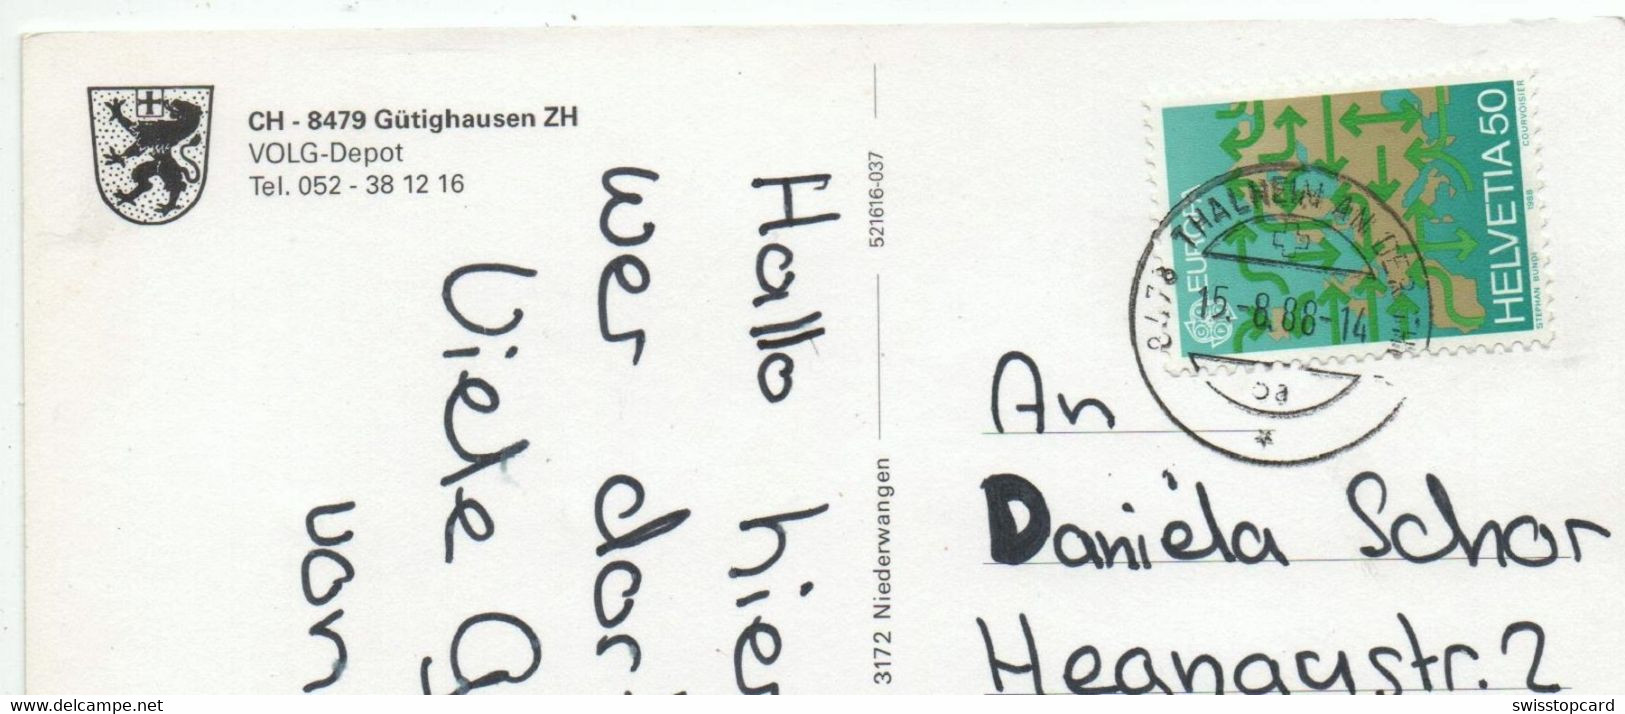 CH - 8479 Gütighausen ZH
VOLG-Depot
Tel. 052 - 38 12 16
Hallo hier
wer dor
Viele G
von
521616-037
3172 Niederwangen
EUROPA
HELVETIA 50
STEPHAN BUNDI 1988 COURVOISIER
8478 THALHEIM AN DER THUR
15.-8.88-14
An
Daniela Schor
Hegnaustr. 2
www.delcampe.net
swisstopcard